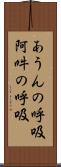 あうんの呼吸
阿吽の呼吸